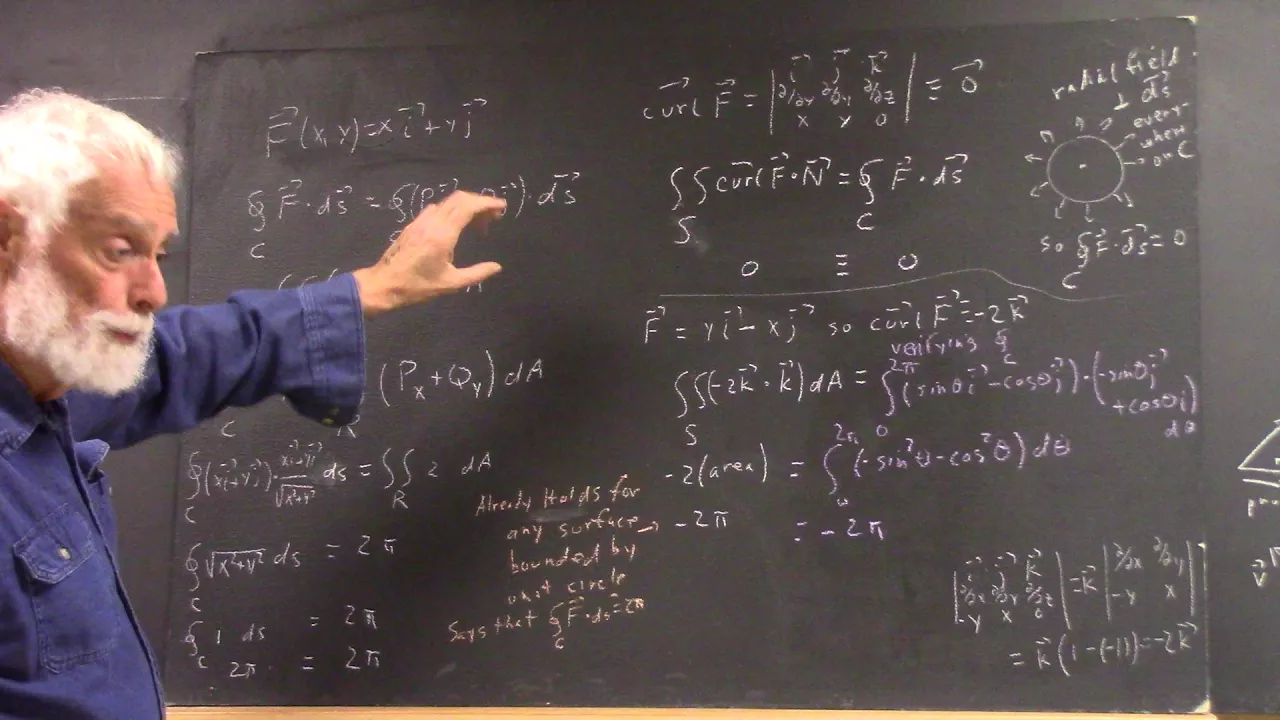 F⃗(x,y)=x i⃗+y j⃗
∮_C F⃗·ds⃗ = ∮(P i⃗ Q j⃗)·ds⃗
(P_x+Q_y)dA
C R
∮_C (x i⃗+y j⃗)·(x i⃗+y j⃗)/√(x²+y²) ds = ∬_R 2 dA
∮_C √(x²+y²) ds = 2π
∮_C 1 ds = 2π
2π = 2π
Already Holds for
any surface →
bounded by
unit circle
Says that ∮_C F⃗·ds⃗=2π
curl F⃗ = | i⃗ j⃗ k⃗ ; ∂/∂x ∂/∂y ∂/∂z ; x y 0 | ≡ 0⃗
∬_S curl F⃗·N⃗ = ∮_C F⃗·ds⃗
0 ≡ 0
radial field
⊥ ds⃗
every-
where
on C
so ∮_C F⃗·ds⃗=0
F⃗ = y i⃗ - x j⃗ so curl F⃗=-2k⃗
verifying ∮_C
∬_S (-2k⃗·k⃗)dA = ∫_0^2π (sinθ i⃗-cosθ j⃗)·(-sinθ i⃗
+cosθ j⃗)
dθ
-2(area) = ∫_0^2π (-sin²θ-cos²θ)dθ
-2π = -2π
| i⃗ j⃗ k⃗ ; ∂/∂x ∂/∂y ∂/∂z ; -y x 0 | = k⃗ | ∂/∂x ∂/∂y ; -y x |
= k⃗(1-(-1))=-2k⃗